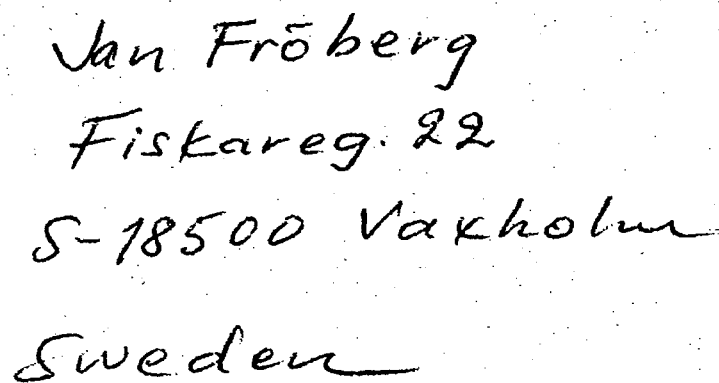 Jan Fröberg
Fiskareg. 22
S-18500 Vaxholm
Sweden